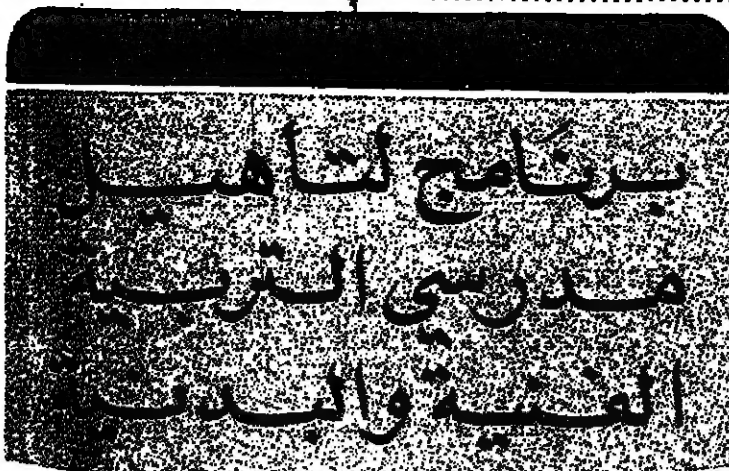 برنامج لتأهيل
مدرسي التربية
الفنية والبدنية